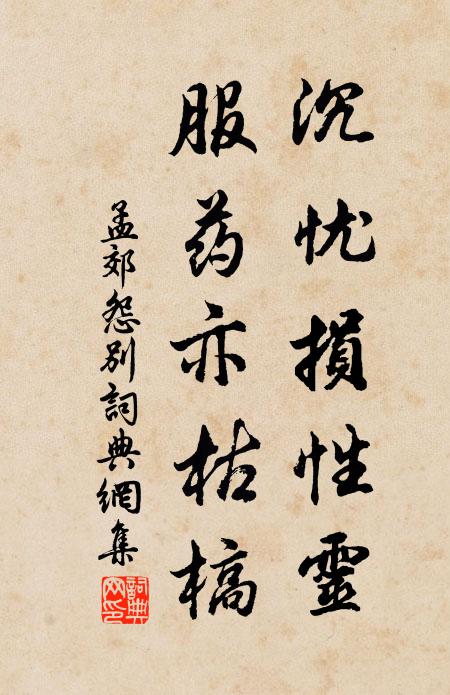 沉忧損性靈
服药亦枯槁
孟郊怨别詞典網集
詞典网印